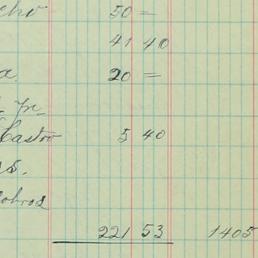 50 =
41 40
a 20 =
Jr
Castro 5 40
s.
obros
221 53 1405